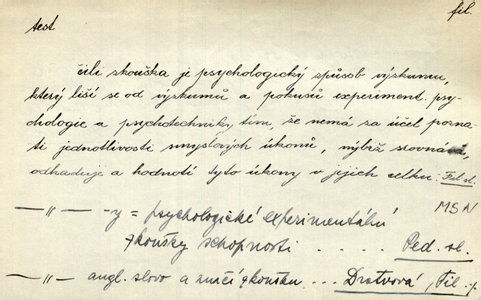 fil.
test
čili zkouška je psychologický způsob výzkumu,
který liší se od výzkumů a pokusů experiment. psy-
chologie a psychotechniky tím, že nemá za účel pozna-
ti jednotlivosti smyslových úkonů, nýbrž srovnává,
odhaduje a hodnotí tyto úkony v jejich celku. Fil. sl.
MSN
—〃— -y = psychologické experimentální
zkoušky schopnosti . . . . . Ped. sl.
—〃— angl. slovo a značí zkoušku . . . Dratvová, Fil.